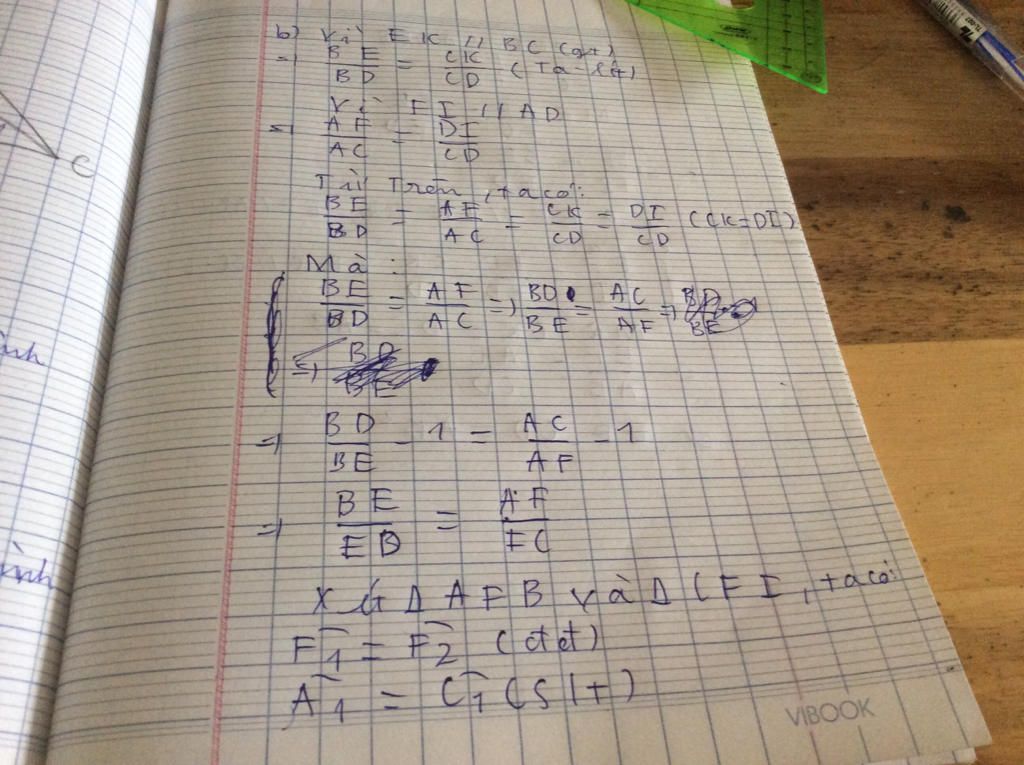 C
ình
ình
b) Vì EK // BC (gt)
=> BE/BD = CK/CD (Ta-lét)
Vì FI // AD
=> AF/AC = DI/CD
Từ trên, ta có:
BE/BD = AF/AC = CK/CD = DI/CD (CK=DI)
Mà:
BE/BD = AF/AC => BD/BE = AC/AF =>
=> BD/BE - 1 = AC/AF - 1
=> BE/ED = AF/FC
Xét Δ AFB và Δ CFI, ta có:
F1 = F2 (đđ)
A1 = C1 (slt)
VIBOOK